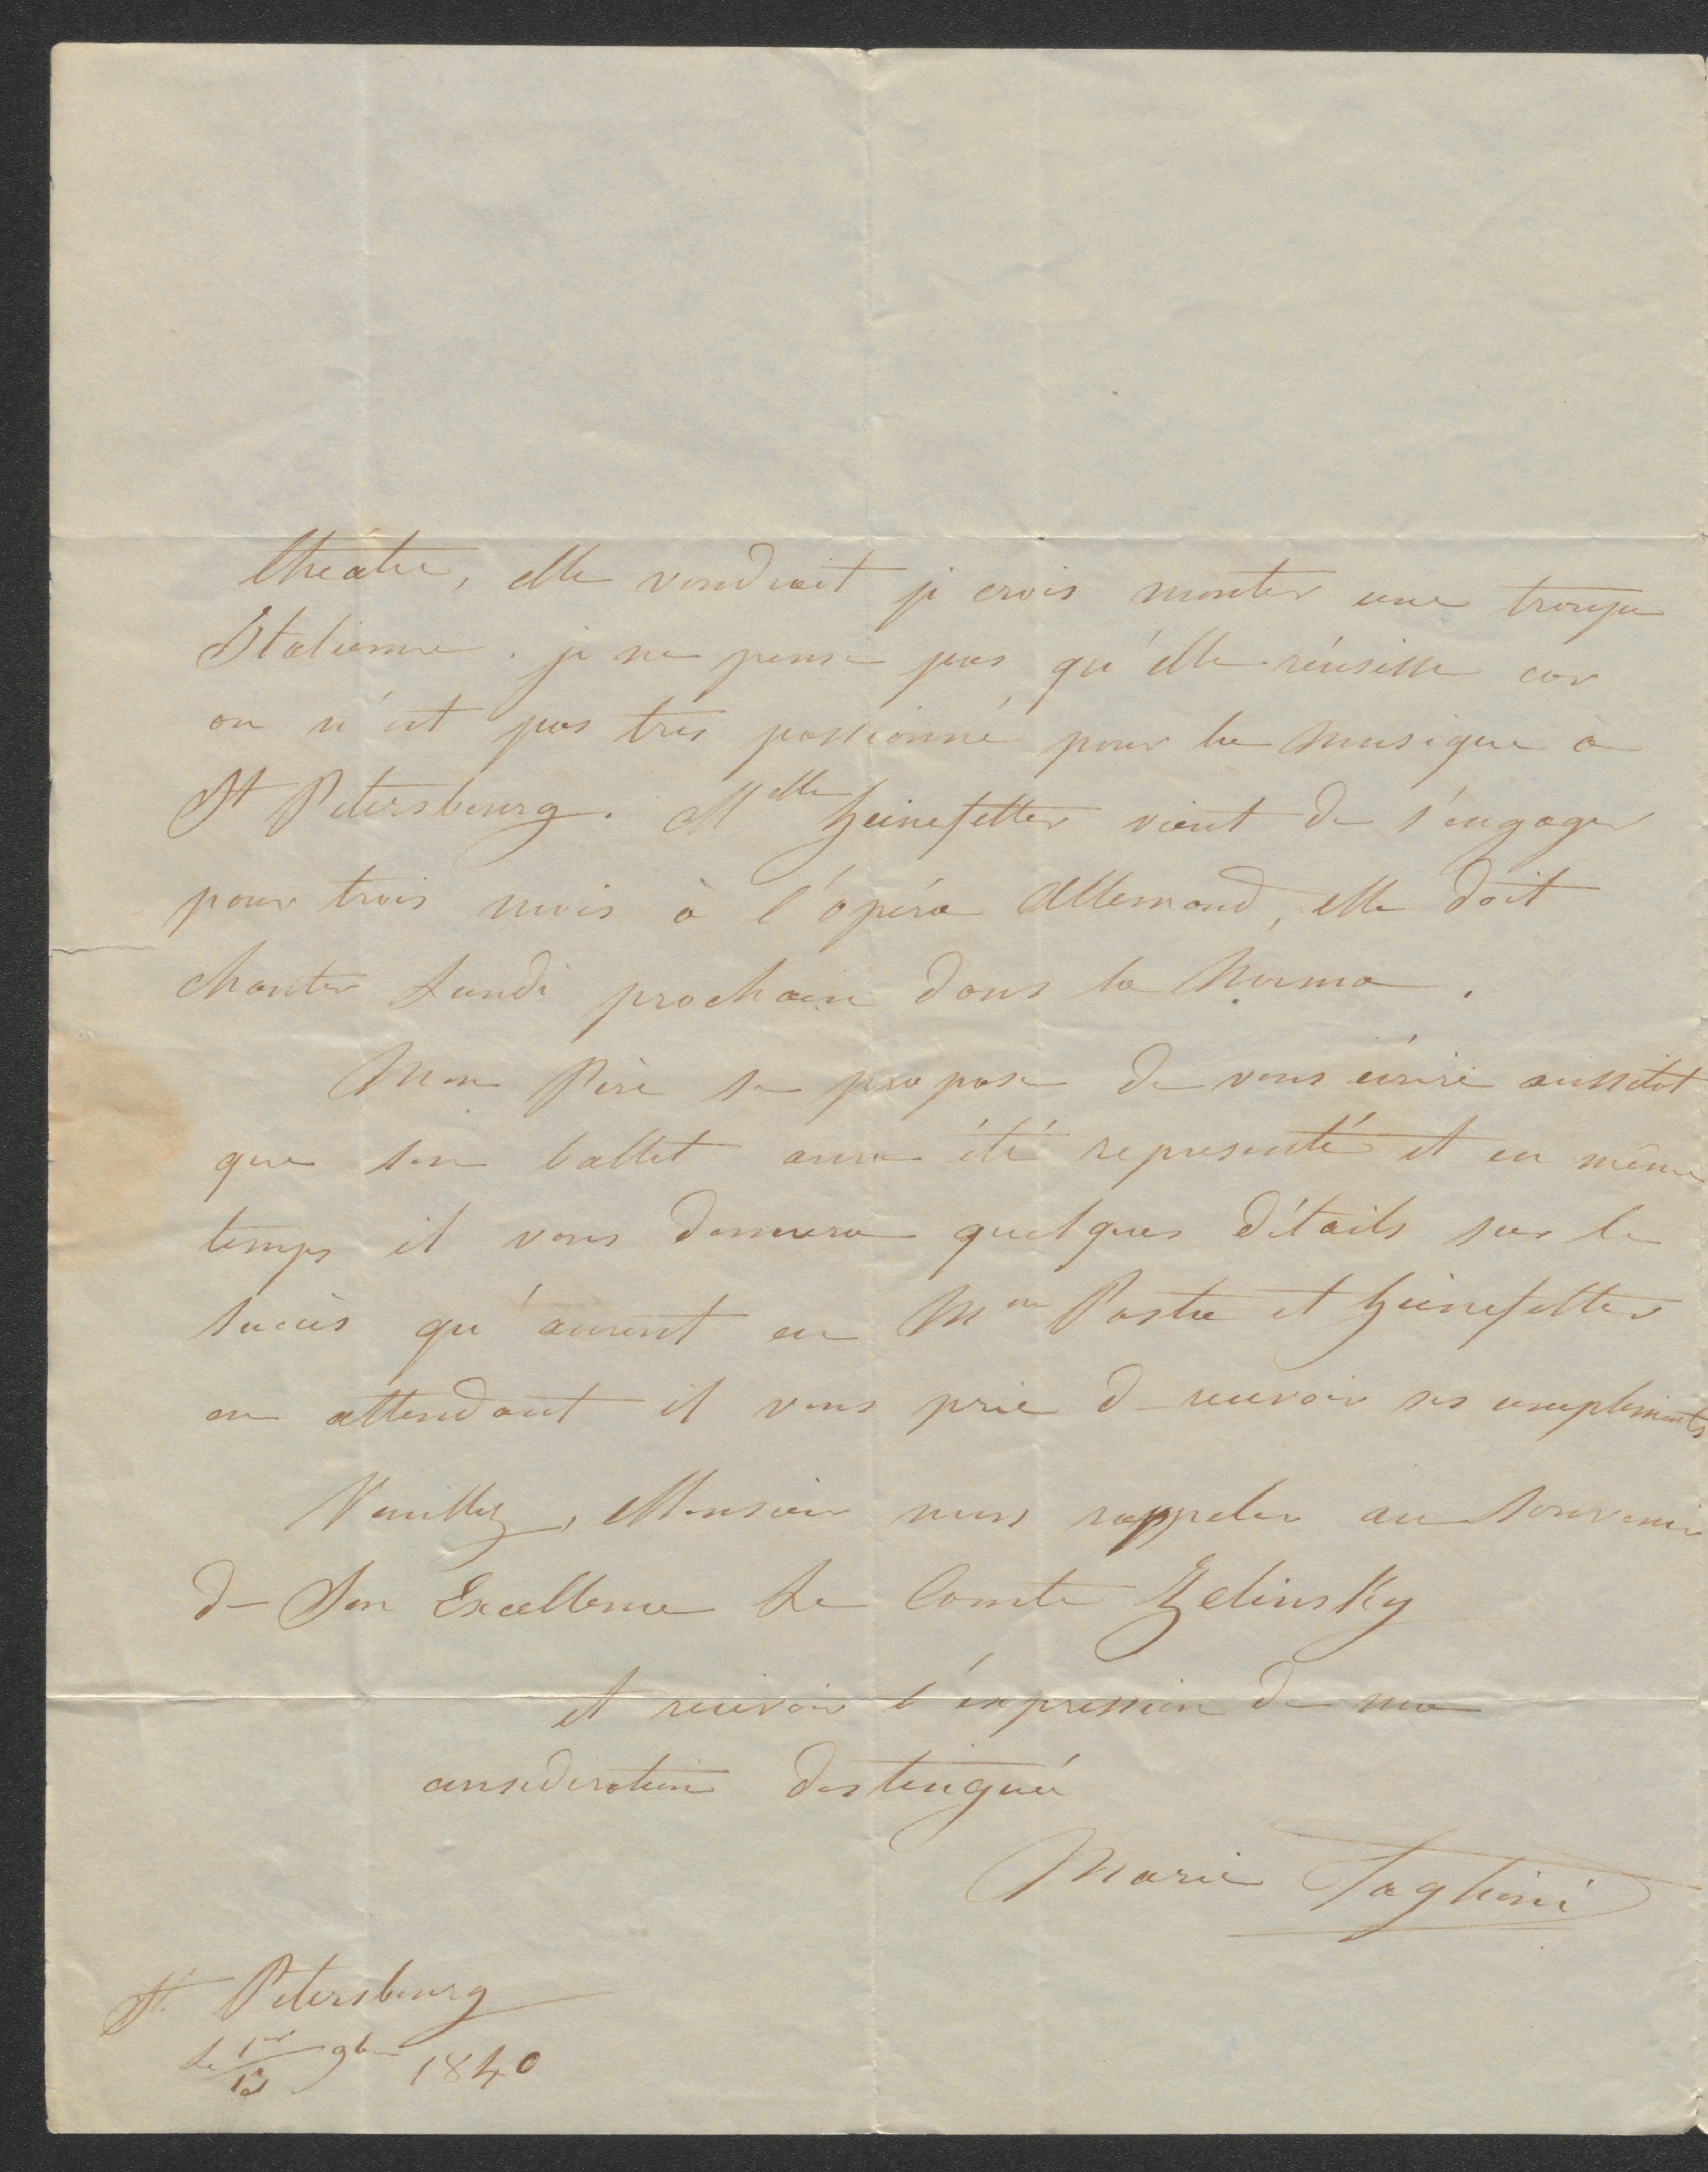 théatre, elle voudrait je crois monter une troupe
Italienne. je ne pense pas qu'elle réusisse car
on n'est pas tres passionné pour la musique à
St Petersbourg. Melle Heinefetter vient de s'engager
pour trois mois à l'opéra Allemand, elle doit
chanter Lundi prochain dans la Norma.
Mon Père se propose de vous écrire aussitot
que son ballet aura été representé et en même
temps il vous donnera quelques détails sur le
succès qu'auront eu Mme Pasta et Heinefetter
en attendant il vous prie de recevoir ses compliments
Veuillez, Monsieur nous rappeler au souvenir
de Son Excellence Le Comte Zelinsky
et recevoir l'éxpression de ma
consideration distinguée
Marie Taglioni
St. Petersbourg
Le 1er/13 9bre 1840